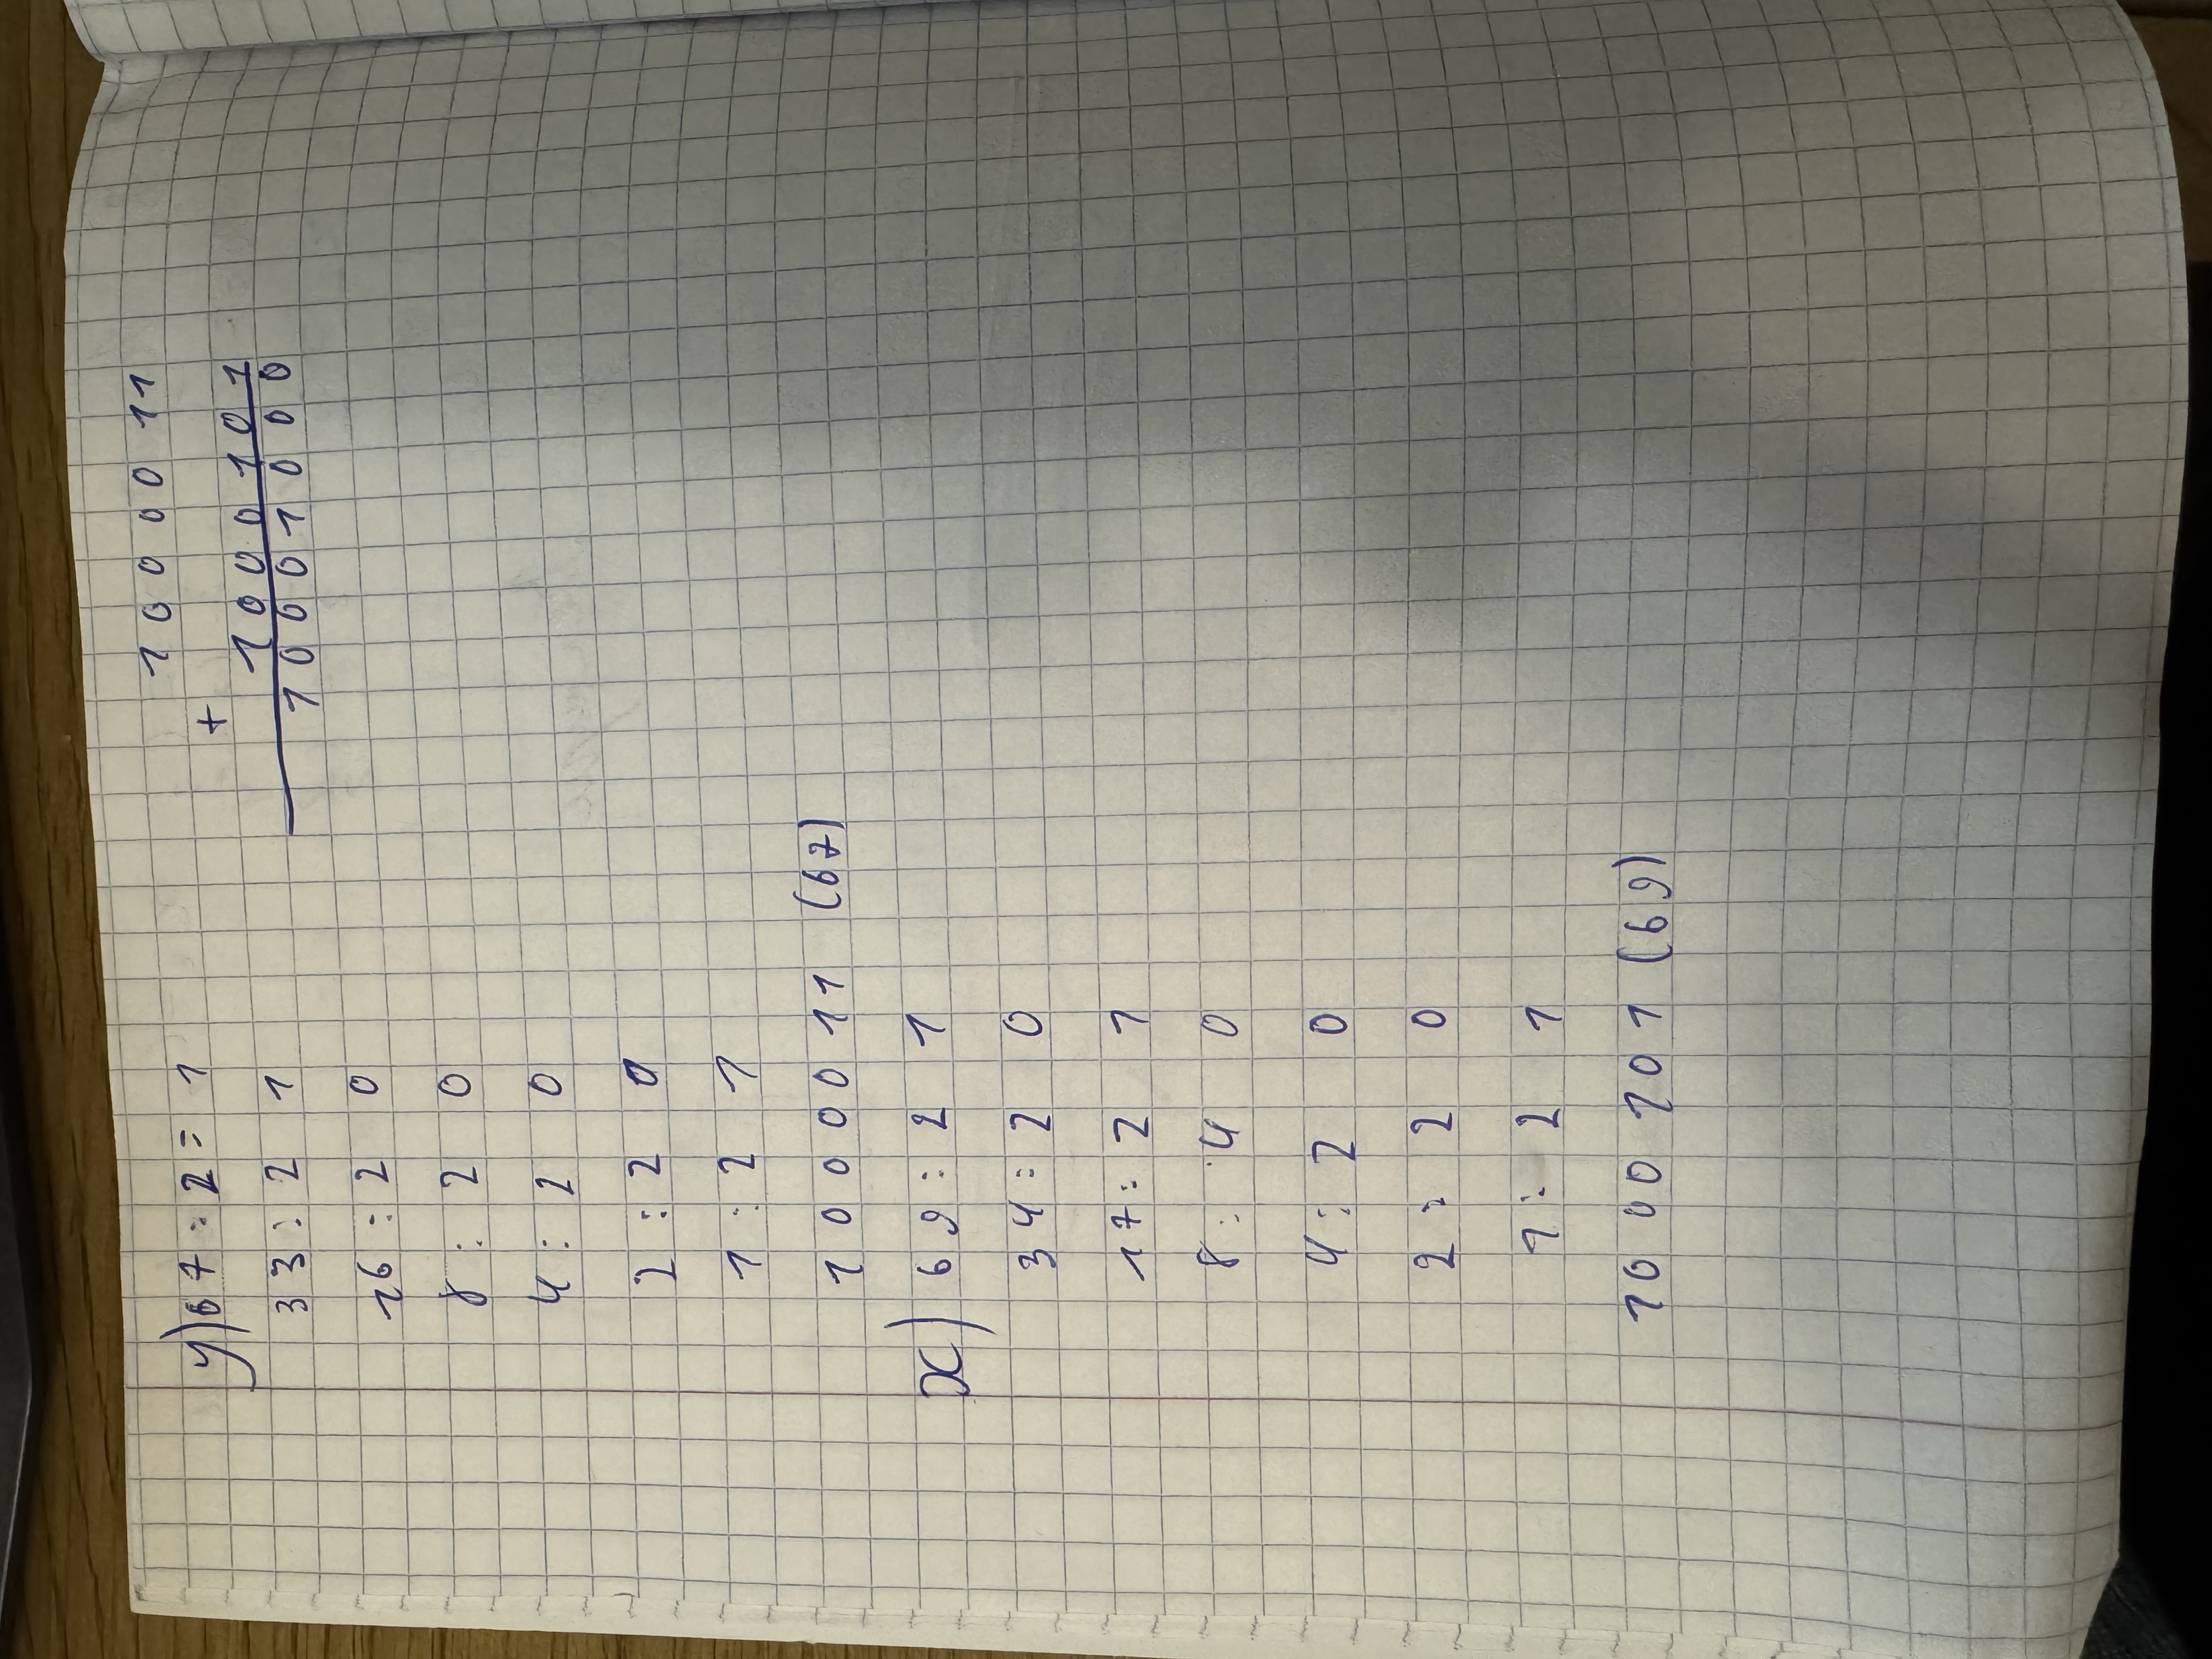 y) 67 : 2 = 1
33 : 2 1
16 : 2 0
8 : 2 0
4 : 2 0
2 : 2 0
1 : 2 1
1000011 (67)
x) 69 : 2 1
34 : 2 0
17 : 2 1
8 : 4 0
4 : 2 0
2 : 2 0
1 : 2 1
1000101 (69)
1000011
+
1000101
10001000